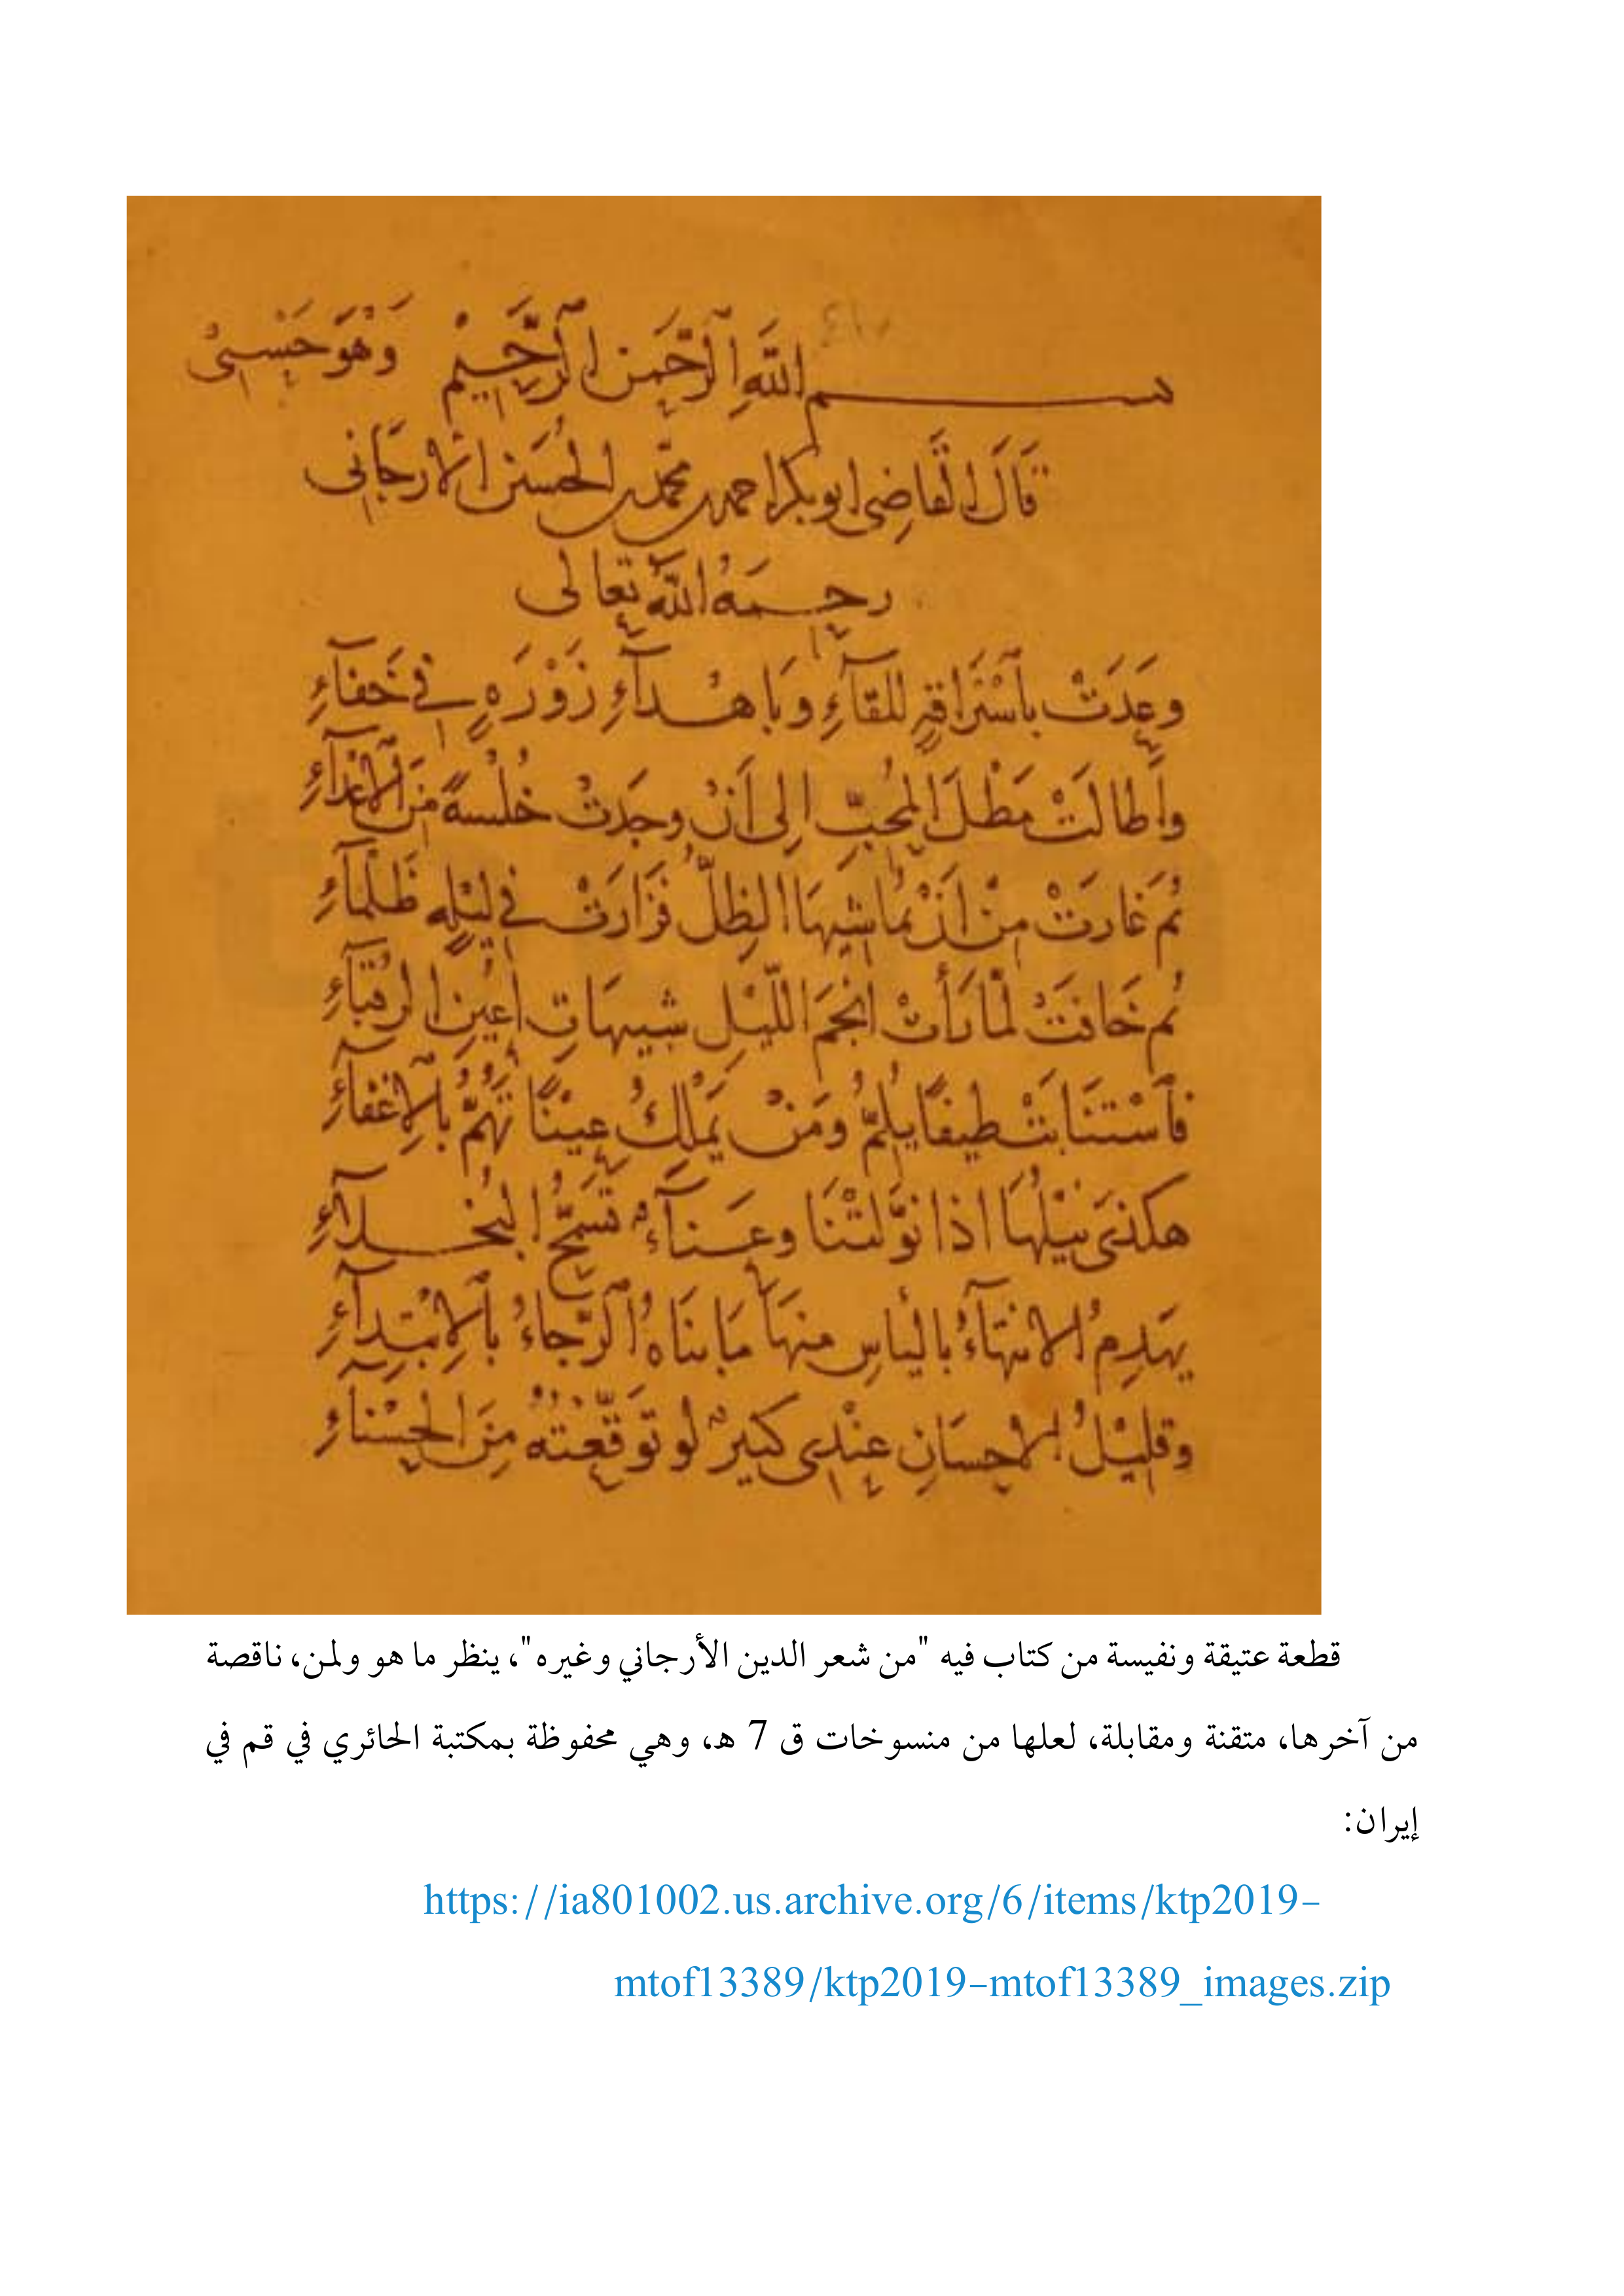 بســـــم الله الرَّحْمَن الرَّحِيم وَهُوَ حَسْبِي
قَالَ القَاضِي ابو بكر احمد بن محمد بن الحسين الارجاني
رحمه الله تعالى
وعَدَتْ بِاسْتِرَاقَةٍ لِلقَآءِ وَبِاهْدَآءِ زَوْرَةٍ في خَفَآءِ
واَطالَتْ مَطْلَ المُحِبِّ اِلى اَنْ وجَدتْ خُلْسةً مِنَ الْاَعْدَآءِ
ثم غَارَتْ مِنْ اَنْ يُمَاشِيهَا الظِلُّ فَزَارَتْ في لَيْلةٍ ظَلْمَآءِ
ثم خَافَتْ لَمّا رَأَتْ اَنْجُمَ اللَّيْلِ شَبيهَاتِ اَعْيُنِ الرُقبَآءِ
فَاسْتَنَابَتْ طيفًا يُلِمُّ ومَنْ يَمْلِكُ عيْنًا تَهُمُّ بالْاِغْفآءِ
هكذى نَيْلُهَا اذا نَوَّلَتْنَا وعَنَآءٌ تَسَمُّحُ البُخَلآءِ
يَهْدِمُ الانتِهَآءُ باليَأسِ مِنهَا مَا بنَاهُ الرَّجاءُ بالْاِبْتِدَآءِ
وقليْلُ الاحسَانِ عنْدِى كَثيرٌ لو تَوَقَّعْتُهُ مِنَ الحَسْنآءِ
قطعة عتيقة ونفيسة من كتاب فيه "من شعر الدين الأرجاني وغيره"، ينظر ما هو ولمن، ناقصة
من آخرها، متقنة ومقابلة، لعلها من منسوخات ق 7 هـ، وهي محفوظة بمكتبة الحائري في قم في
إيران:
https://ia801002.us.archive.org/6/items/ktp2019-
mtof13389/ktp2019-mtof13389_images.zip